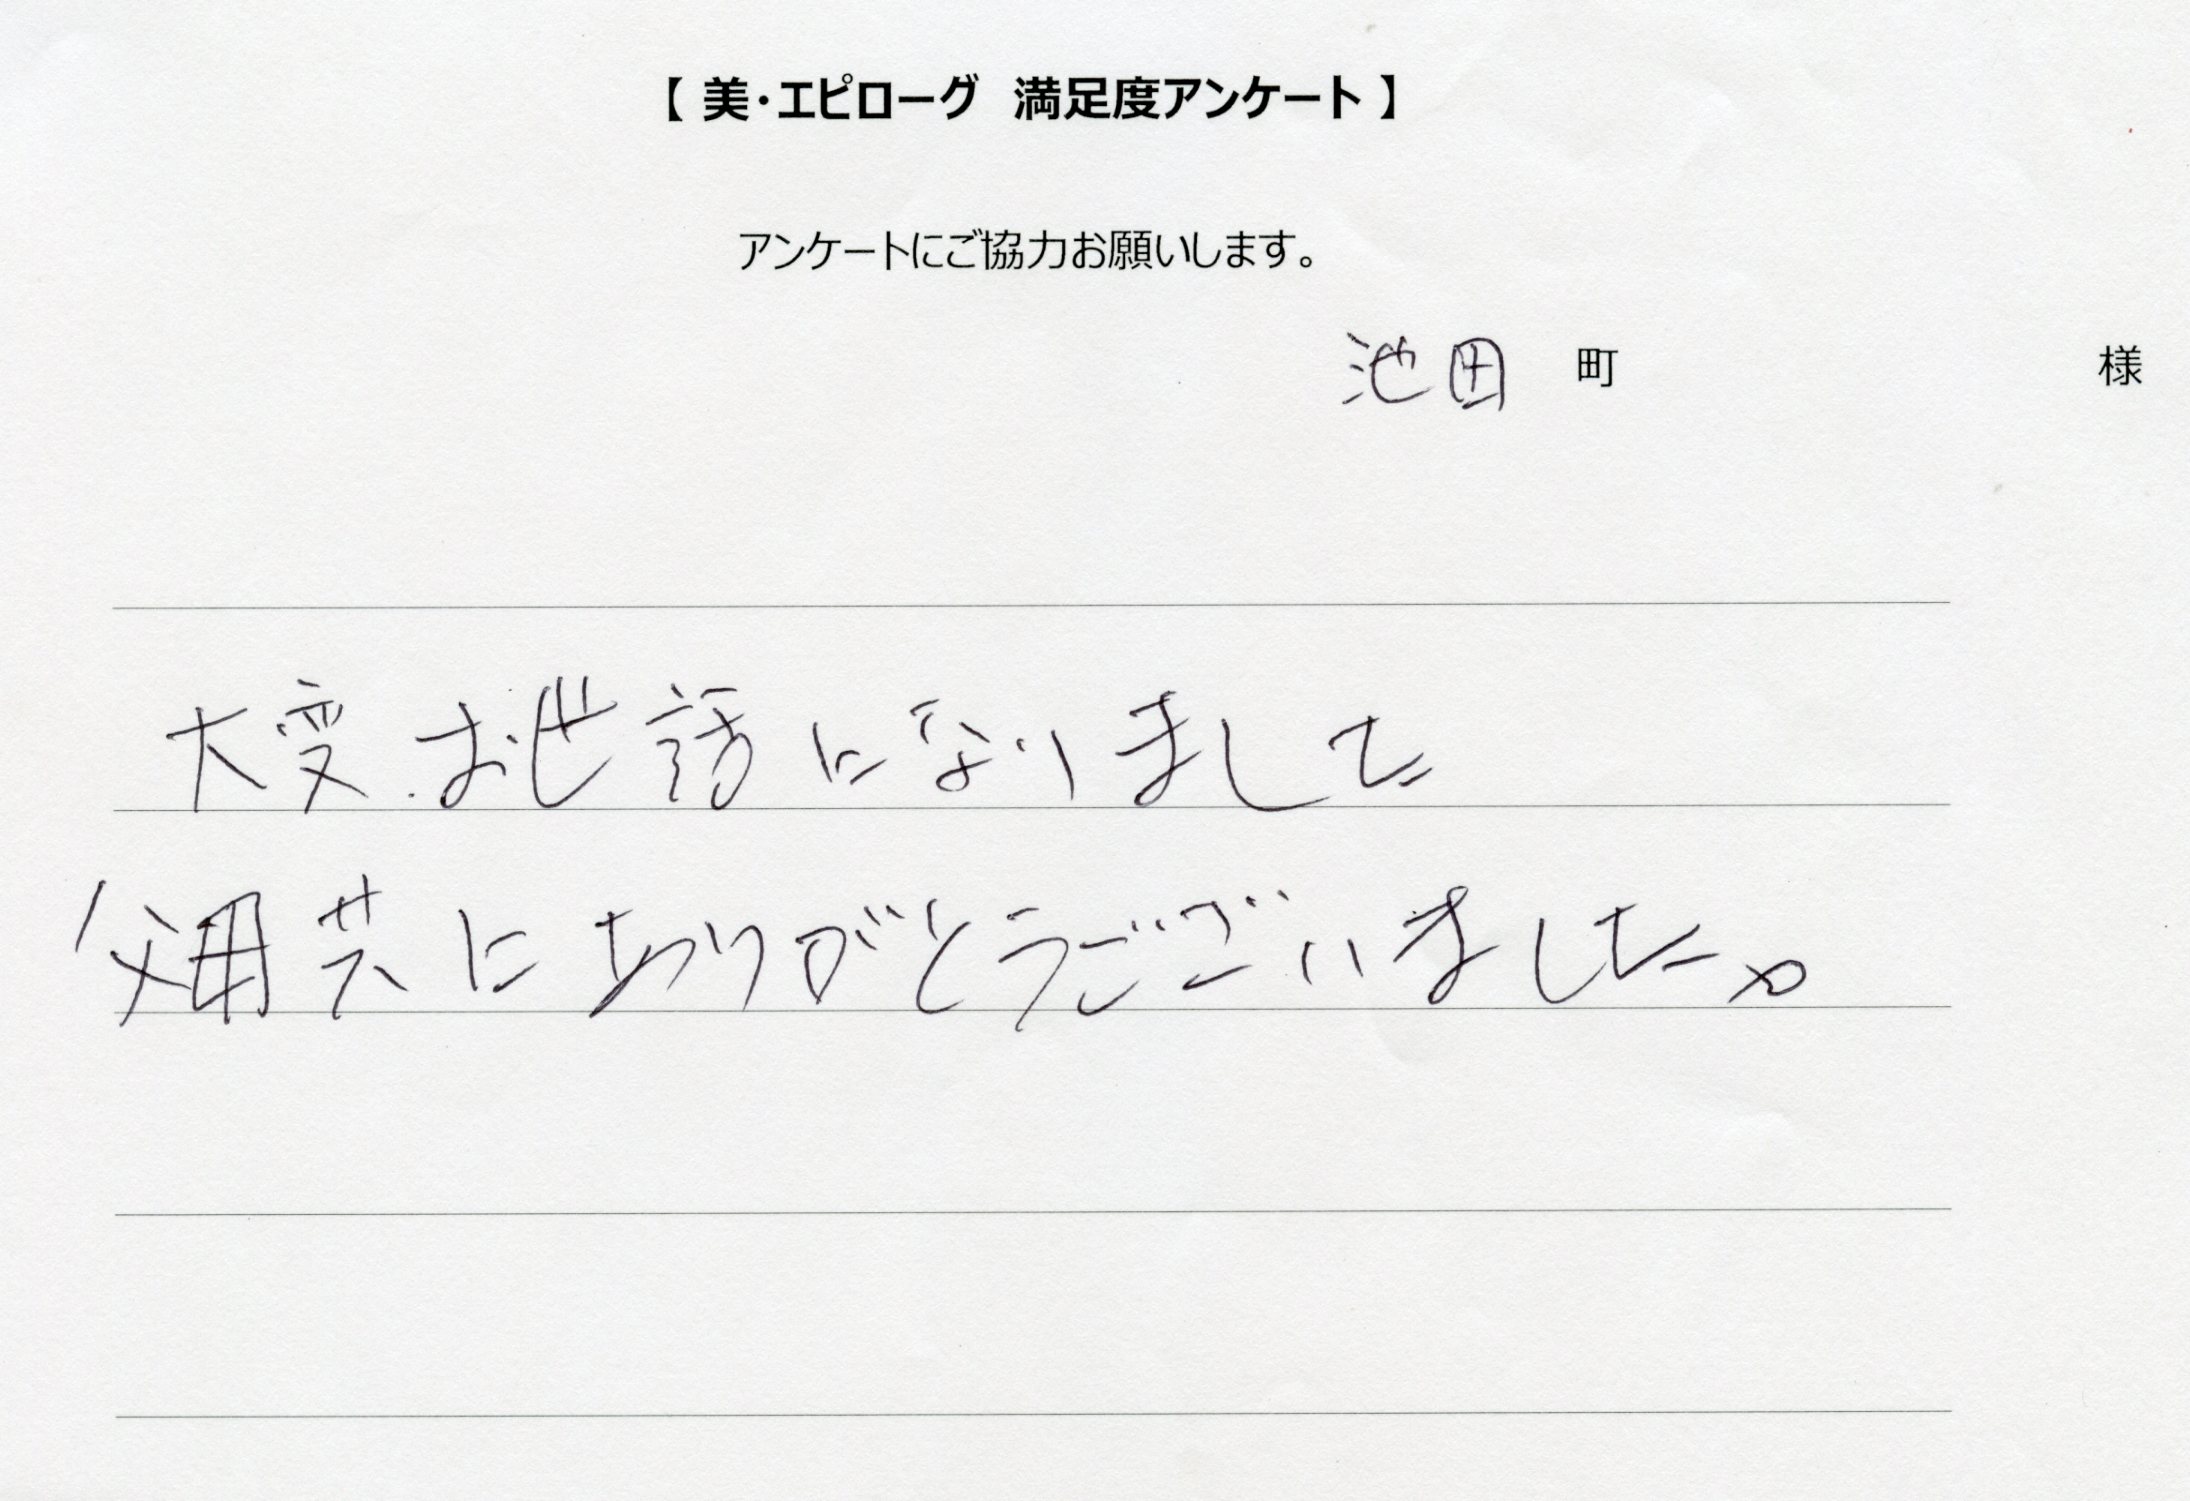 【 美・エピローグ 満足度アンケート 】
アンケートにご協力お願いします。
池田 町 様
大変お世話になりました
父母共にありがとうございました。